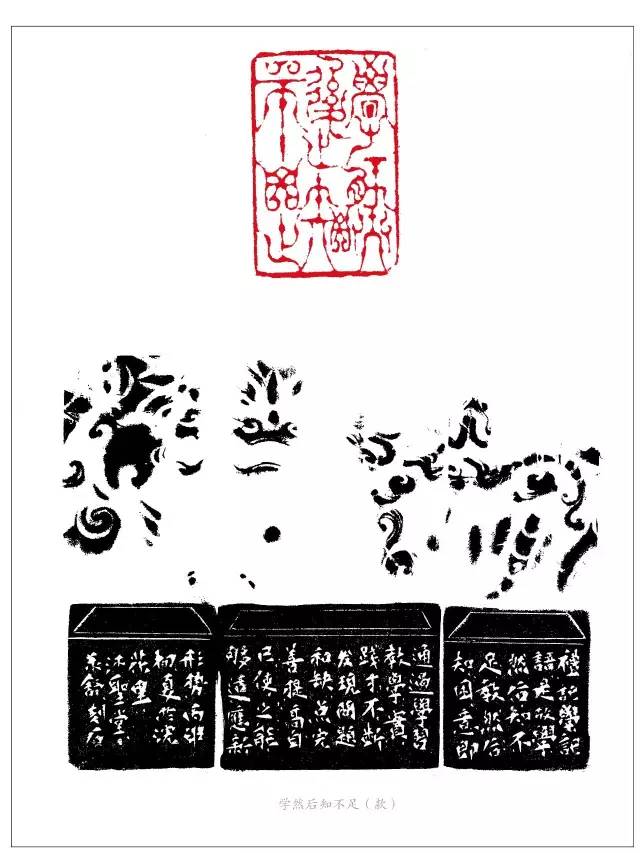 學然
後知
不足
禮記學記
語是故學
然后知不
足教然后
知困意即
通過學習
教學實
踐才不斷
发現問題
和缺点完
善提高自
己使之能
够適應新
形勢丙
初夏於沈
沐聖堂
刻石
学然后知不足（款）